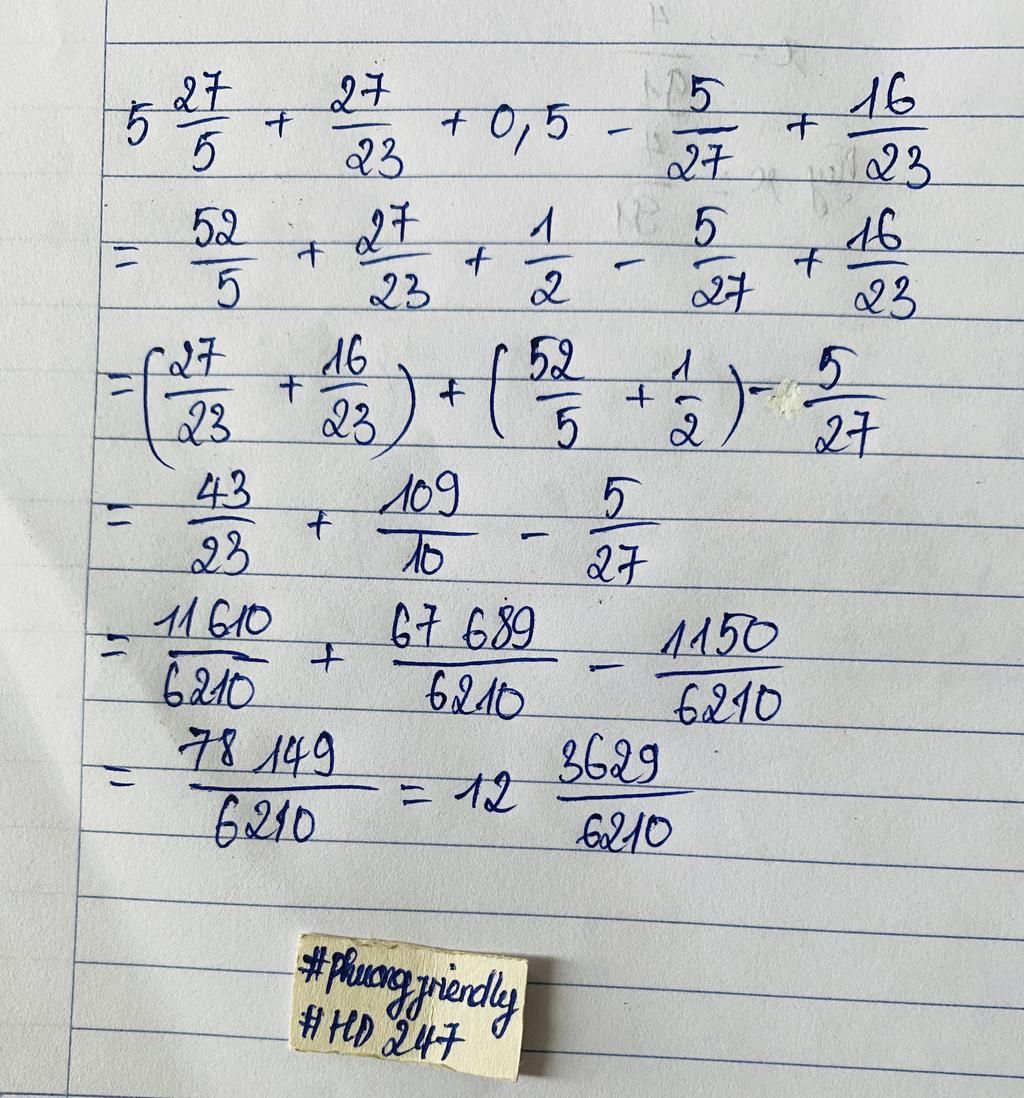 5 27/5 + 27/23 + 0,5 - 5/27 + 16/23
= 52/5 + 27/23 + 1/2 - 5/27 + 16/23
= (27/23 + 16/23) + (52/5 + 1/2) - 5/27
= 43/23 + 109/10 - 5/27
= 11610/6210 + 67 689/6210 - 1150/6210
= 78 149/6210 = 12 3629/6210
#phuongfriendly
#HD 247